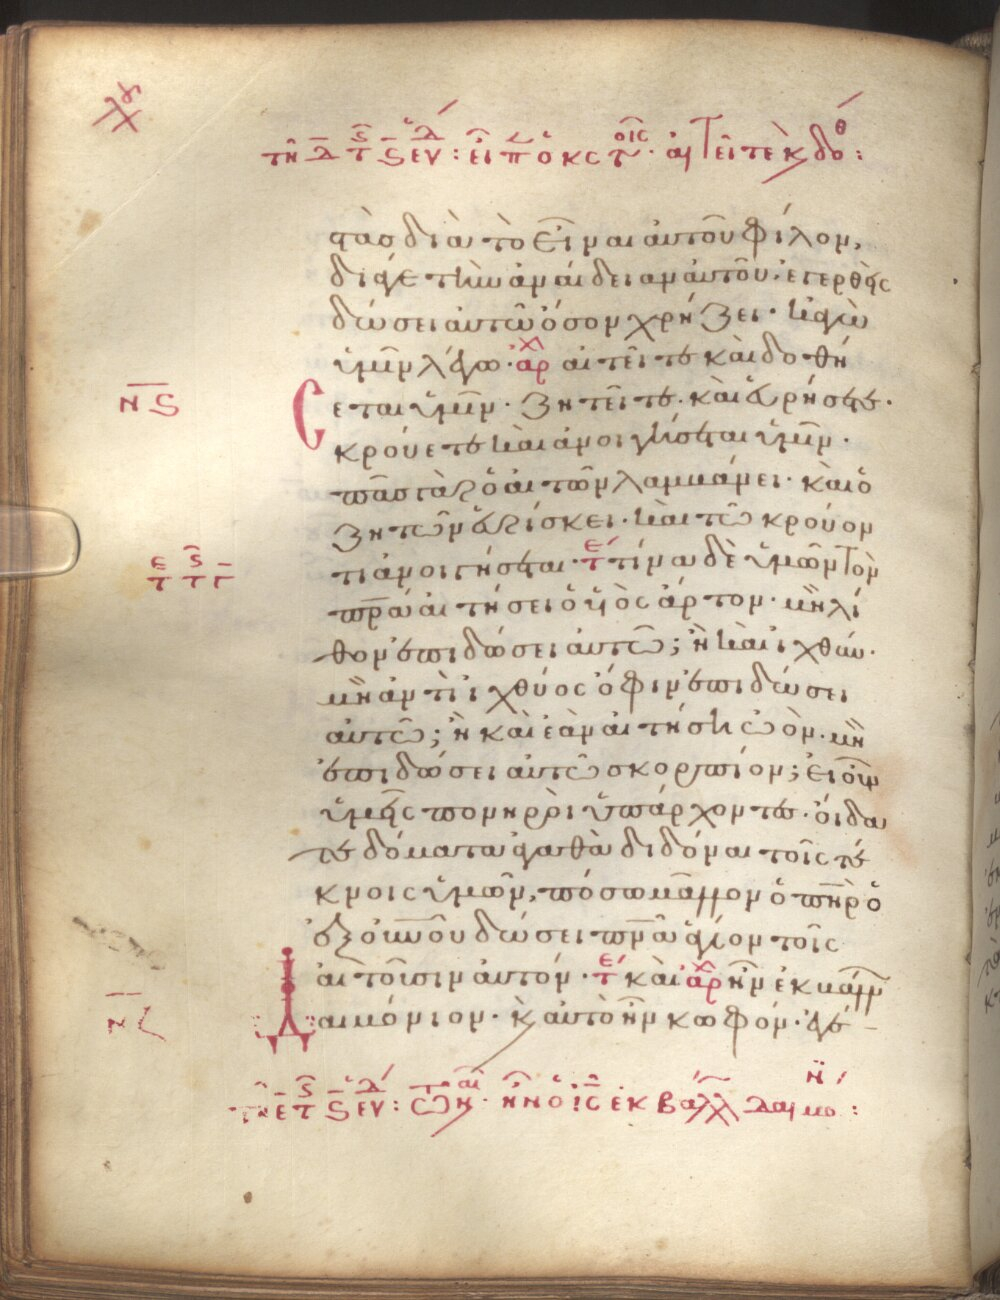 τῆ δ τ ς ευ : εἶπ ὁ κς τοῖς · αἰτεῖτε κ δοθ :
στὰς διὰ τὸ εἶναι αὐτοῦ φίλον,
διά γε τὴν ἀναίδειαν αὐτοῦ · ἐγερθεὶς
δώσει αὐτῶ ὅσον χρήζει · κἀγὼ
ὑμῖν λέγω · ἀρχ αἰτεῖτε καὶ δοθή
σεται ὑμῖν · ζητεῖτε · καὶ εὑρήσετε ·
νς
κρούετε καὶ ἀνοιγήσεται ὑμῖν ·
πᾶς γὰρ ὁ αἰτῶν λαμβάνει · καὶ ὁ
ζητῶν εὑρίσκει · καὶ τῶ κρούον
τι ἀνοιγήσεται · τε τίνα δὲ ὑμῶν τὸν
πρα αἰτήσει ὁ υἱὸς ἄρτον · μὴ λί
θον ἐπιδώσει αὐτῶ ; ἢ καὶ ἰχθύν ·
μὴ ἀντὶ ἰχθύος ὄφιν ἐπιδώσει
αὐτῶ ; ἢ καὶ ἐὰν αἰτήση ὠὸν · μὴ
ἐπιδώσει αὐτῶ σκορπίον ; εἰ οὖν
ὑμεῖς πονηροὶ ὑπάρχοντες · οἴδα
τε δόματα ἀγαθὰ διδόναι τοῖς τέ
κνοις ὑμῶν, πόσω μᾶλλον ὁ πηρ ὁ
ἐξ οὐνοῦ δώσει πνα ἅγιον τοῖς
αἰτοῦσιν αὐτόν · τε καὶ ἀρχ ἦν ἐκβάλλων
νζ
δαιμόνιον · κ αὐτὸ ἦν κωφόν · ἐγέ
τῆ ε τ ς ευ : τῶ κ · ἦν ὁ ις ἐκβάλλ δαιμο :